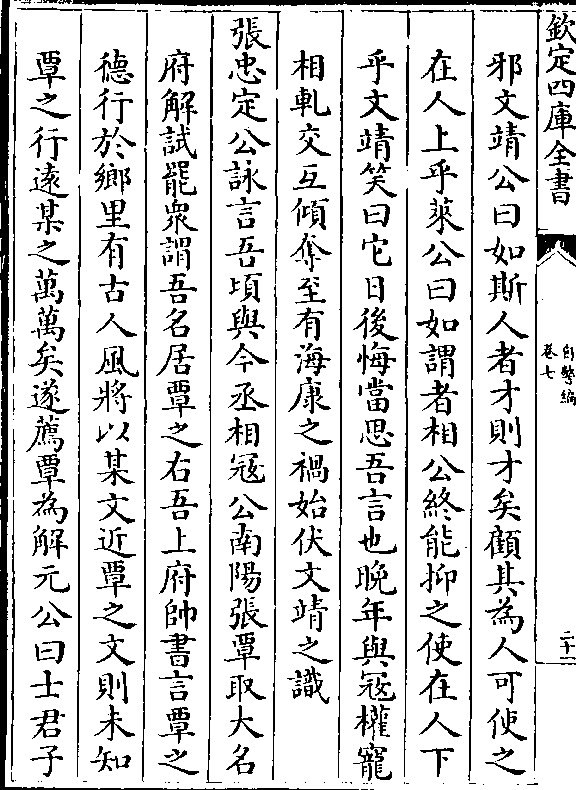 欽定四庫全書
自警編
卷七
二十二
邪文靖公曰如斯人者才則才矣顧其為人可使之
在人上乎萊公曰如謂者相公終能抑之使在人下
乎文靖笑曰它日後悔當思吾言也晚年與寇權寵
相軋交互傾奪至有海康之禍始伏文靖之識
張忠定公詠言吾頃與今丞相寇公南陽張覃取大名
府解試罷衆謂吾名居覃之右吾上府帥書言覃之
德行於鄉里有古人風將以某文近覃之文則未知
覃之行遠某之萬萬矣遂薦覃為解元公曰士君子